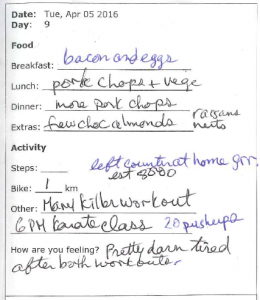 Date: Tue, Apr 05 2016
Day: 9
Food
Breakfast: bacon and eggs
Lunch: pork chops + vege
Dinner: more pork chops
Extras: few choc almonds
nuts
Activity
left counter at home grr.
Steps: est 8500
Bike: 1 km
Other: Mary Killer workout
6 PM Karate class 20 pushups
How are you feeling? Pretty darn tired
after both workouts.